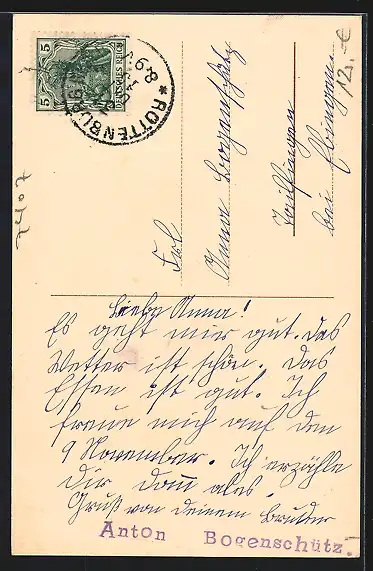 5 DEUTSCHES REICH 5
* ROTTENBURG
8-9V.
12.-€
Frl
Anna Bogenschütz
Tailfingen
bei Ebingen
Liebe Anna!
Es geht mir gut. Das
Wetter ist schön. Das
Essen ist gut. Ich
freue mich auf den
9 November. Ich erzähle
dir dann ales.
Gruß von deinem Bruder
Anton Bogenschütz.